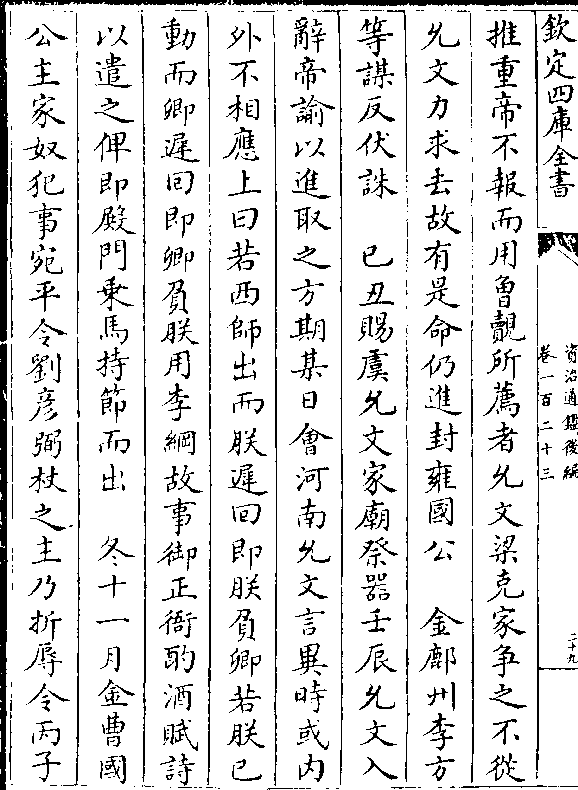 欽定四庫全書
資治通鑑後編
卷一百二十三
二十九
推重帝不報而用曾覿所薦者允文梁克家爭之不從
允文力求去故有是命仍進封雍國公　金鄜州李方
等謀反伏誅　已丑賜虞允文家廟祭器壬辰允文入
辭帝諭以進取之方期某日會河南允文言異時或内
外不相應上曰若西師出而朕遲回即朕負卿若朕已
動而卿遲回即卿負朕用李綱故事御正衙酌酒賦詩
以遣之俾即殿門乗馬持節而出　冬十一月金曹國
公主家奴犯事宛平令劉彦弼杖之主乃折辱令丙子